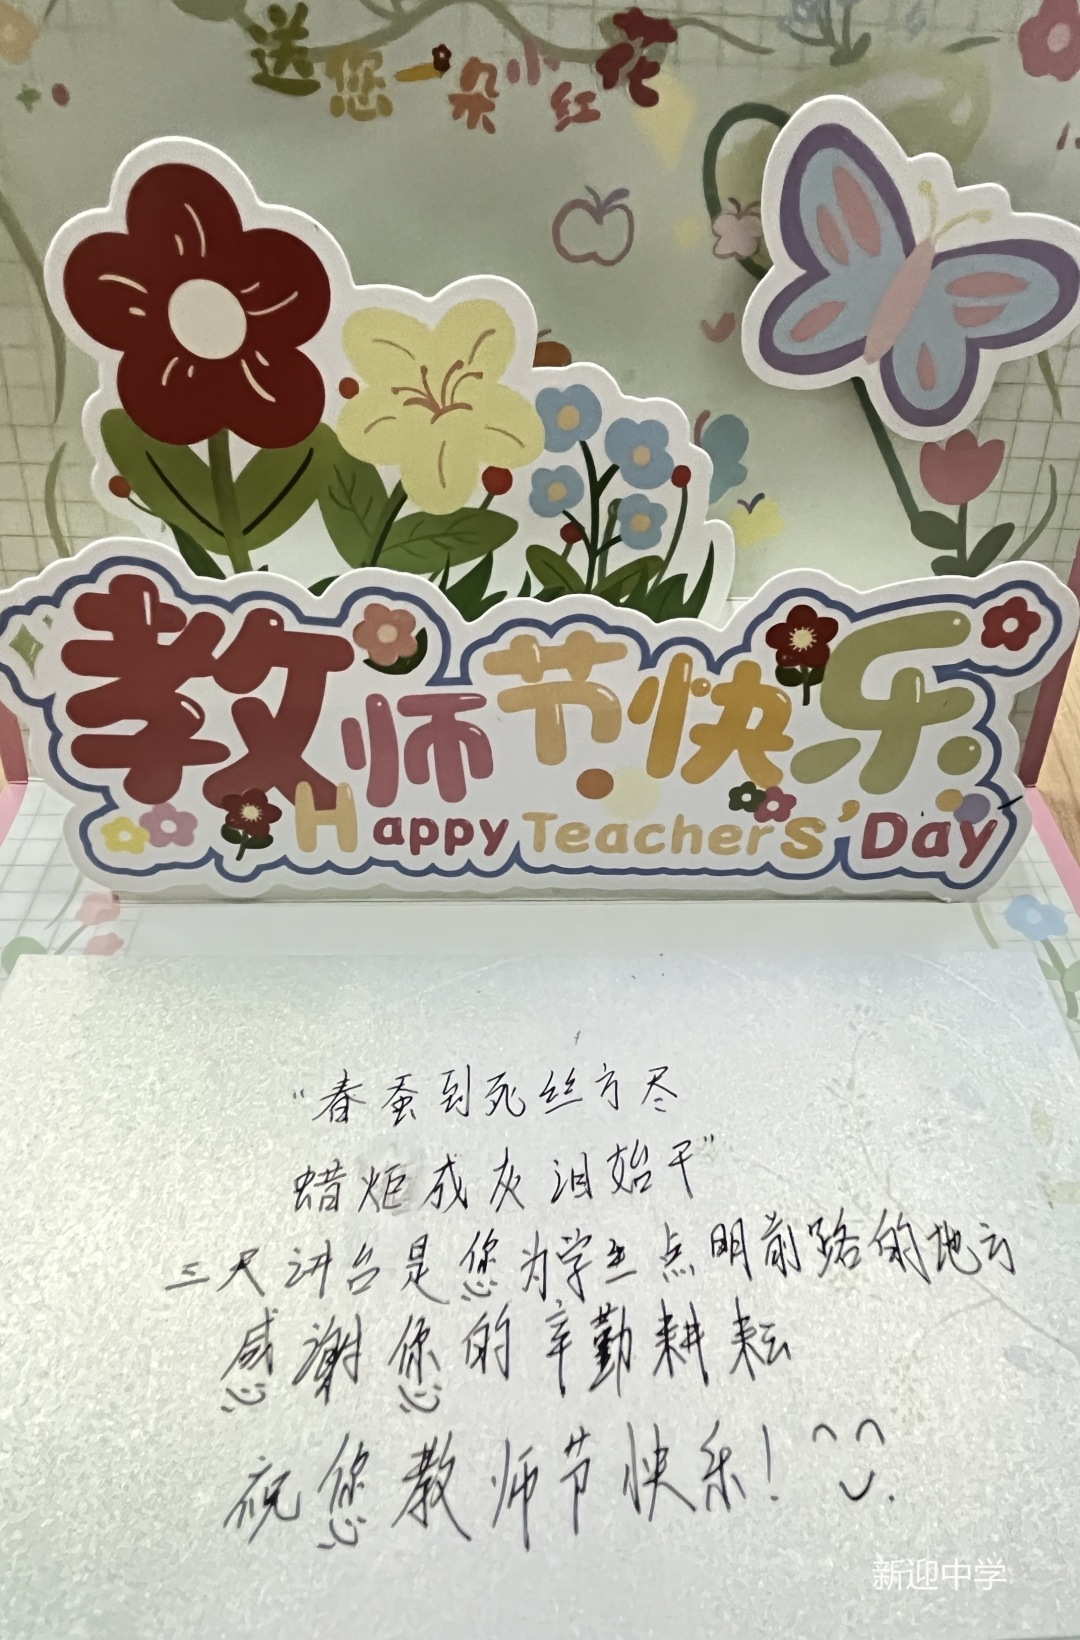 送您一朵小红花
教师节快乐
Happy Teachers' Day
“春蚕到死丝方尽
蜡炬成灰泪始干”
三尺讲台是您为学生点明前路的地方
感谢您的辛勤耕耘
祝您教师节快乐！
新迎中学